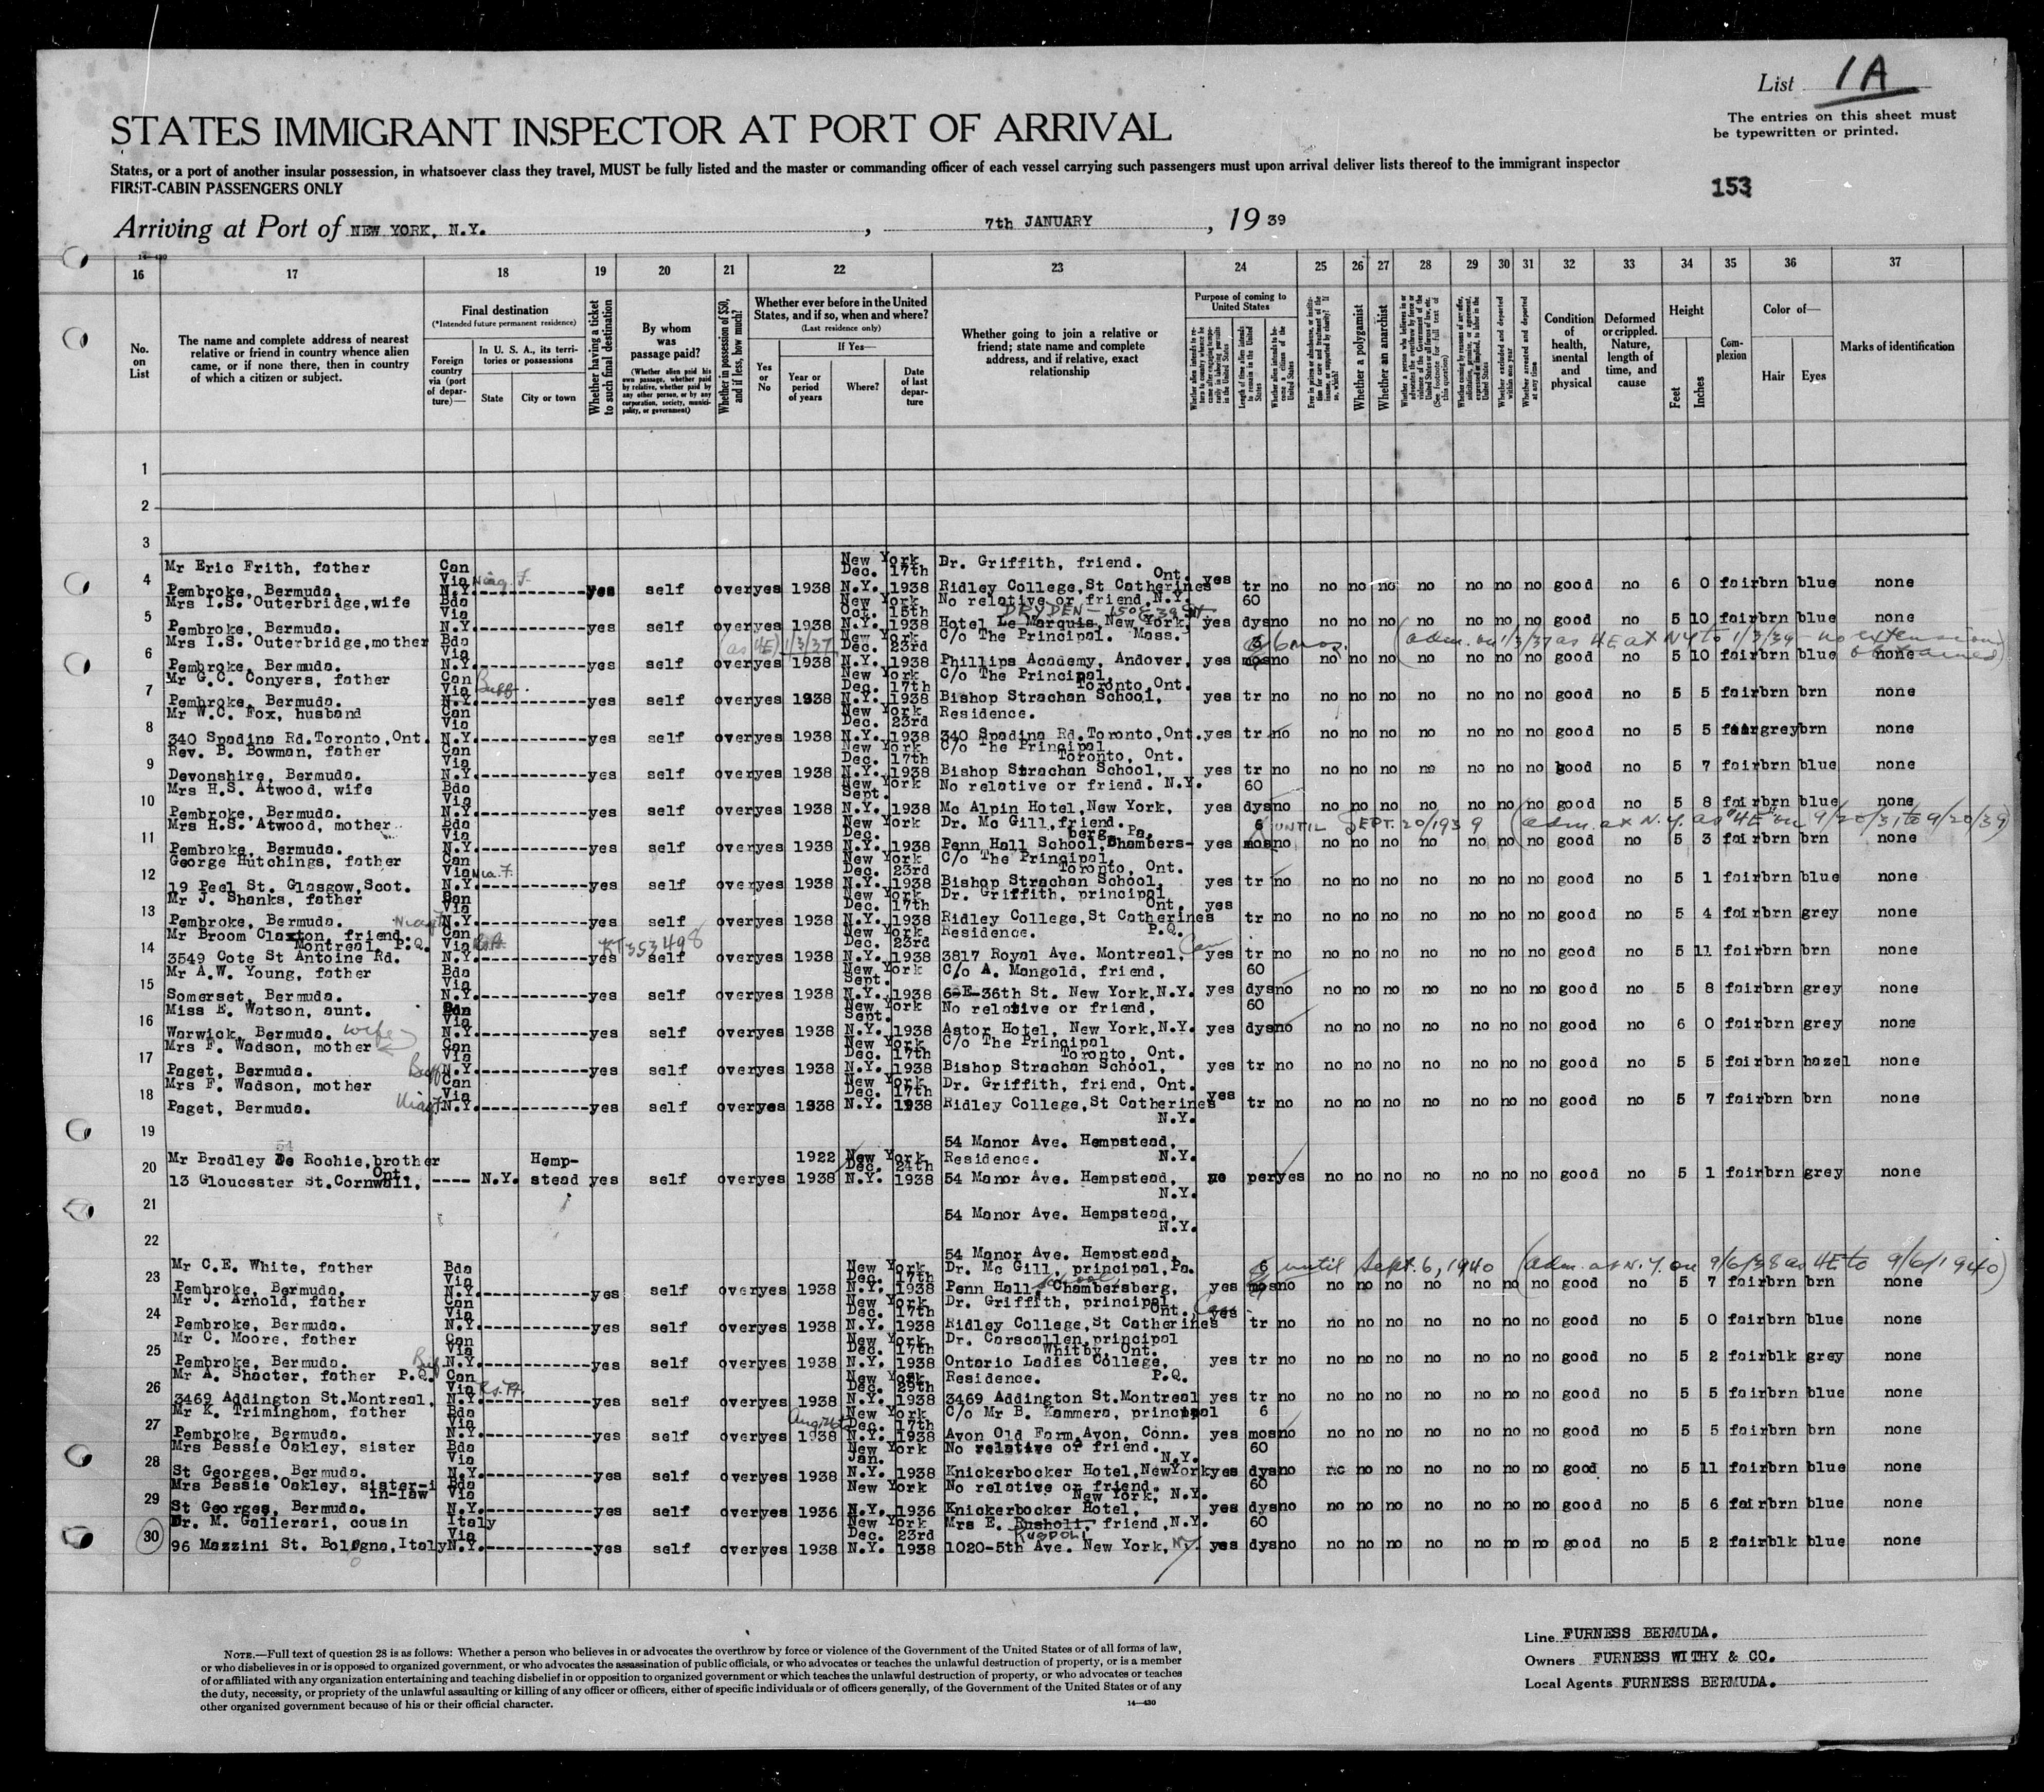 List 1A
The entries on this sheet must
be typewritten or printed.
STATES IMMIGRANT INSPECTOR AT PORT OF ARRIVAL
States, or a port of another insular possession, in whatsoever class they travel, MUST be fully listed and the master or commanding officer of each vessel carrying such passengers must upon arrival deliver lists thereof to the immigrant inspector
FIRST-CABIN PASSENGERS ONLY
153
Arriving at Port of NEW YORK, N.Y. , 7th JANUARY , 19 39
14—430
16 17 18 19 20 21 22 23 24 25 26 27 28 29 30 31 32 33 34 35 36 37
No. on List
The name and complete address of nearest relative or friend in country whence alien came, or if none there, then in country of which a citizen or subject.
Final destination
(*Intended future permanent residence)
Foreign country via (port of departure)—
In U. S. A., its territories or possessions
State
City or town
Whether having a ticket to such final destination
By whom was passage paid?
(Whether alien paid his own passage, whether paid by relative, whether paid by any other person, or by any corporation, society, municipality, or government)
Whether in possession of $50, and if less, how much?
Whether ever before in the United States, and if so, when and where?
(Last residence only)
Yes or No
If Yes—
Year or period of years
Where?
Date of last departure
Whether going to join a relative or friend; state name and complete address, and if relative, exact relationship
Purpose of coming to United States
Whether alien intends to return to country whence he came after engaging temporarily in laboring pursuits in the United States
Length of time alien intends to remain in the United States
Whether alien intends to become a citizen of the United States
Ever in prison or almshouse, or institution for care and treatment of the insane, or supported by charity? If so, which?
Whether a polygamist
Whether an anarchist
Whether a person who believes in or advocates the overthrow by force or violence of the Government of the United States or all forms of law, etc. (See footnote for full text of this question)
Whether coming by reason of any offer, solicitation, promise, or agreement, expressed or implied, to labor in the United States
Whether excluded and deported within one year
Whether arrested and deported at any time
Condition of health, mental and physical
Deformed or crippled. Nature, length of time, and cause
Height
Feet
Inches
Complexion
Color of—
Hair
Eyes
Marks of identification
1
2
3
4 Mr Eric Frith, father Pembroke, Bermuda. Can Via N.Y. Niag. F. yes self over yes 1938 New York N.Y. Dec. 17th 1938 Dr. Griffith, friend. Ridley College, St Catherines Ont. yes tr no no no no no no no no good no 6 0 fair brn blue none
5 Mrs I.S. Outerbridge, wife Pembroke, Bermuda. Bda Via N.Y. yes self over yes 1938 New York N.Y. Oct. 15th 1938 No relative or friend, N.Y. DRYDEN - 150 E. 39 St Hotel Le Marquis, New York. yes 60 dys no no no no no no no no good no 5 10 fair brn blue none
6 Mrs I.S. Outerbridge, mother Pembroke, Bermuda. Bda Via N.Y. yes self over yes (as 4E) 1/3/37 1938 New York N.Y. Dec. 23rd 1938 C/o The Principal. Mass. Phillips Academy, Andover, yes mos 6 mos. no no no no no no no no good no 5 10 fair brn blue none (adm. on 1/3/37 as 4E at NY to 1/3/39 - no extension obtained)
7 Mr G.C. Conyers, father Pembroke, Bermuda. Can Via N.Y. Buff. yes self over yes 1938 New York N.Y. Dec. 17th 1938 C/o The Principal, Toronto, Ont. Bishop Strachan School, yes tr no no no no no no no no good no 5 5 fair brn brn none
8 Mr W.C. Fox, husband 340 Spadina Rd. Toronto, Ont. Can Via N.Y. yes self over yes 1938 New York N.Y. Dec. 23rd 1938 Residence. 340 Spadina Rd. Toronto, Ont. yes tr no no no no no no no no good no 5 5 fair grey brn none
9 Rev. B. Bowman, father Devonshire, Bermuda. Can Via N.Y. yes self over yes 1938 New York N.Y. Dec. 17th 1938 C/o The Principal Toronto, Ont. Bishop Strachan School, yes tr no no no no no no no no good no 5 7 fair brn blue none
10 Mrs H.S. Atwood, wife Pembroke, Bermuda. Bda Via N.Y. yes self over yes 1938 New York N.Y. Sept. 1938 No relative or friend. N.Y. Mc Alpin Hotel, New York, yes 60 dys no no no no no no no no good no 5 8 fair brn blue none
11 Mrs H.S. Atwood, mother Pembroke, Bermuda. Bda Via N.Y. yes self over yes 1938 New York N.Y. Dec. 1938 Dr. Mc Gill, friend. Penn Hall School, Chambersberg, Pa. yes 6 mos no no no no no no no no good no 5 3 fair brn brn none (UNTIL SEPT. 20/1939 (adm. at N.Y. as "4E" on 9/20/3 to 9/20/39)
12 George Hutchings, father 19 Peel St. Glasgow, Scot. Can Via N.Y. Nia. F. yes self over yes 1938 New York N.Y. Dec. 23rd 1938 C/o The Principal, Toronto, Ont. Bishop Strachan School, yes tr no no no no no no no no good no 5 1 fair brn blue none
13 Mr J. Shanks, father Pembroke, Bermuda. Can Via N.Y. Niag F yes self over yes 1938 New York N.Y. Dec. 17th 1938 Dr. Griffith, principal Ont. Ridley College, St Catherines yes tr no no no no no no no no good no 5 4 fair brn grey none
14 Mr Broom Claxton, friend. Montreal, P.Q. 3549 Cote St Antoine Rd. Can Via N.Y. yes KT353498 self over yes 1938 New York N.Y. Dec. 23rd 1938 Residence. P.Q. 3817 Royal Ave. Montreal, Can yes tr no no no no no no no no good no 5 11 fair brn brn none
15 Mr A.W. Young, father Somerset, Bermuda. Bda Via N.Y. yes self over yes 1938 New York N.Y. Sept. 1938 C/o A. Mangold, friend, 6-E-36th St. New York, N.Y. yes 60 dys no no no no no no no no good no 5 8 fair brn grey none
16 Miss E. Watson, aunt. Warwick, Bermuda. wife Bda Via N.Y. yes self over yes 1938 New York N.Y. Sept. 1938 No relative or friend, Astor Hotel, New York, N.Y. yes 60 dys no no no no no no no no good no 6 0 fair brn grey none
17 Mrs F. Wadson, mother Paget, Bermuda. Buff Can Via N.Y. yes self over yes 1938 New York N.Y. Dec. 17th 1938 C/o The Principal Toronto, Ont. Bishop Strachan School, yes tr no no no no no no no no good no 5 5 fair brn hazel none
18 Mrs F. Wadson, mother Paget, Bermuda. Niag F Can Via N.Y. yes self over yes 1938 New York N.Y. Dec. 17th 1938 Dr. Griffith, friend, Ont. Ridley College, St Catherines yes tr no no no no no no no no good no 5 7 fair brn brn none
19 54 Manor Ave. Hempstead, N.Y.
20 Mr Bradley De Rochie, brother 13 Gloucester St. Cornwall, Ont. ---- N.Y. Hempstead yes self over yes 1922 1938 New York N.Y. Dec. 24th 1938 Residence. 54 Manor Ave. Hempstead, N.Y. no per yes no no no no no no no good no 5 1 fair brn grey none
21 54 Manor Ave. Hempstead, N.Y.
22 54 Manor Ave. Hempstead, N.Y.
23 Mr C.E. White, father Pembroke, Bermuda. Bda Via N.Y. yes self over yes 1938 New York N.Y. Dec. 17th 1938 Dr. Mc Gill, principal, Pa. Penn Hall School, Chambersberg, yes 6 mos no no no no no no no no good no 5 7 fair brn brn none until Sept. 6, 1940 (adm. at N.Y. on 9/6/38 as 4E to 9/6/1940)
24 Mr J. Arnold, father Pembroke, Bermuda. Can Via N.Y. yes self over yes 1938 New York N.Y. Dec. 17th 1938 Dr. Griffith, principal Ont. Ridley College, St Catherines yes tr no no no no no no no no good no 5 0 fair brn blue none
25 Mr C. Moore, father Pembroke, Bermuda. Can Via N.Y. yes self over yes 1938 New York N.Y. Dec. 17th 1938 Dr. Carscallen, principal Whitby, Ont. Ontario Ladies College, yes tr no no no no no no no no good no 5 2 fair blk grey none
26 Mr A. Shacter, father P.Q. 3469 Addington St. Montreal, Can Via N.Y. Rs. Pt. yes self over yes 1938 New York N.Y. Dec. 29th 1938 Residence. P.Q. 3469 Addington St. Montreal yes tr no no no no no no no no good no 5 5 fair brn blue none
27 Mr K. Trimingham, father Pembroke, Bermuda. Bda Via N.Y. yes self over yes 1938 New York N.Y. Dec. 17th 1938 C/o Mr B. Kammera, principal Avon Old Farm, Avon, Conn. yes 6 mos no no no no no no no no good no 5 5 fair brn brn none
28 Mrs Bessie Oakley, sister St Georges, Bermuda. Bda Via N.Y. yes self over yes 1938 New York N.Y. Jan. 1938 No relative or friend. N.Y. Knickerbocker Hotel, NewYork yes 60 dys no no no no no no no no good no 5 11 fair brn blue none
29 Mrs Bessie Oakley, sister-i in-law St Georges, Bermuda. Bda Via N.Y. yes self over yes 1936 New York N.Y. 1936 No relative or friend. New York, N.Y. Knickerbocker Hotel, yes 60 dys no no no no no no no no good no 5 6 fair brn blue none
30 Dr. M. Gallerari, cousin 96 Mazzini St. Bologna, Italy Italy Via N.Y. yes self over yes 1938 New York N.Y. Dec. 23rd 1938 Mrs E. Rusholi, Ruspoli friend, N.Y. 1020-5th Ave. New York, N.Y. yes 60 dys no no no no no no no no good no 5 2 fair blk blue none
NOTE.—Full text of question 28 is as follows: Whether a person who believes in or advocates the overthrow by force or violence of the Government of the United States or of all forms of law,
or who disbelieves in or is opposed to organized government, or who advocates the assassination of public officials, or who advocates or teaches the unlawful destruction of property, or is a member
of or affiliated with any organization entertaining and teaching disbelief in or opposition to organized government or which teaches the unlawful destruction of property, or who advocates or teaches
the duty, necessity, or propriety of the unlawful assaulting or killing of any officer or officers, either of specific individuals or of officers generally, of the Government of the United States or of any
other organized government because of his or their official character.
14—430
Line FURNESS BERMUDA.
Owners FURNESS WITHY & CO.
Local Agents FURNESS BERMUDA.